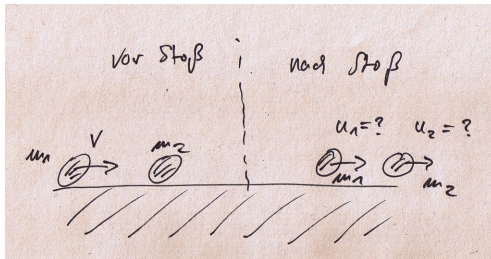 vor Stoß
nach Stoß
u₁=?
u₂=?
m₁
V
m₂
m₁
m₂